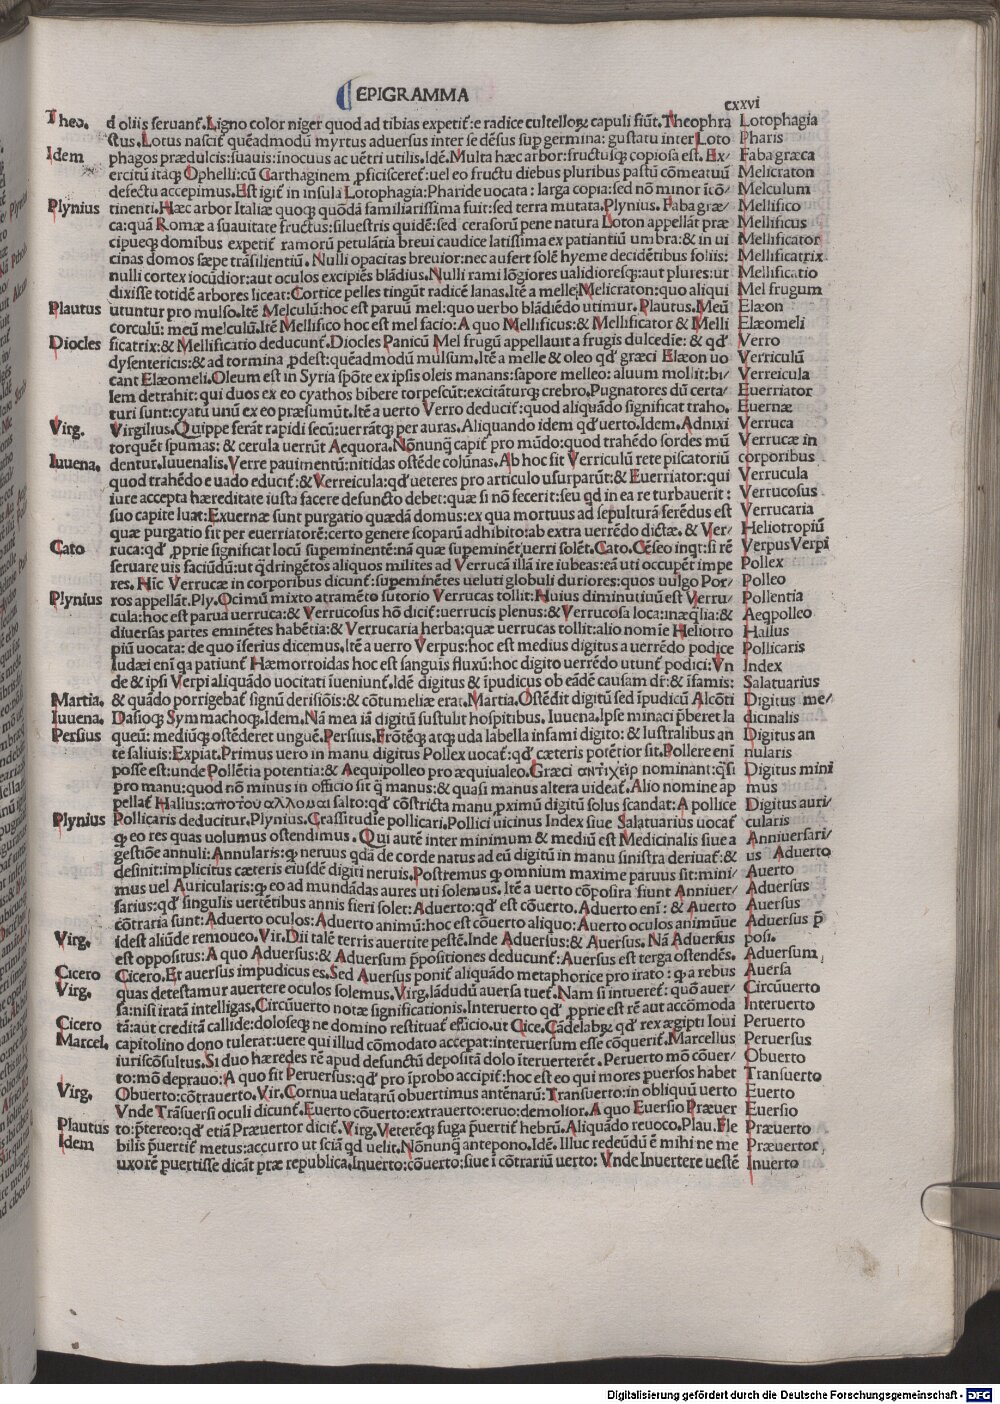 EPIGRAMMA
cxxvi
Theo. d oliis seruant᷒.Ligno color niger quod ad tibias expetit᷒:e radice cultelloꝝ capuli fiūt.Theophra Lotophagia
stus.Lotus nascit᷒ quēadmodū myrtus aduersus inter se dēsus sup germina:gustatu inter Loto Pharis
Idem phagos prædulcis:suauis:inocuus ac uētri utilis.Idē.Multa hæc arbor:fructusq; copiosa est.Ex/ Faba græca
ercitū itaq; Ophelli:cū Carthaginem ꝓficisceret᷒:uel eo fructu diebus pluribus pastū cōmeatuū Melicraton
defectu accepimus.Est igit᷒ in insula Lotophagia:Pharide uocata:larga copia:sed nō minor ī cō/ Melculum
Plynius tinenti.Hæc arbor Italiæ quoq; quōdā familiarissima fuit:sed terra mutata.Plynius.Faba græ/ Mellifico
ca:quā Romæ a suauitate fructus:siluestris quidē:sed cerasorū pene natura Loton appellāt præ Mellificus
cipueq; domibus expetit᷒ ramorū petulātia breui caudice latissima ex patiantiū umbra:& in ui Mellificator
cinas domos sæpe trāsilientiū.Nulli opacitas breuior:nec aufert solē hyeme decidētibus foliis: Mellificatrix
nulli cortex iocūdior:aut oculos excipiēs blādius.Nulli rami lōgiores ualidioresq;:aut plures:ut Mellificatio
dixisse totidē arbores liceat:Cortice pelles tingūt radicē lanas.Itē a melle:Melicraton:quo aliqui Mel frugum
Plautus utuntur pro mulso.Itē Melculū:hoc est paruū mel:quo uerbo blādiēdo utimur.Plautus.Meū Elæon
corculū:meū melculū.Itē Mellifico hoc est mel facio:A quo Mellificus:& Mellificator & Melli Elæomeli
Diocles ficatrix:& Mellificatio deducunt᷒.Diocles Panicū Mel frugū appellauit a frugis dulcedie:& qđ Verro
dysentericis:& ad tormina ꝓdest:quēadmodū mulsum.Itē a melle & oleo qđ græci Elæon uo Verriculū
cant Elæomeli.Oleum est in Syria spōte ex ipsis oleis manans:sapore melleo:aluum mollit:bi/ Verreicula
lem detrahit:qui duos ex eo cyathos bibere torpescūt:excitāturq; crebro.Pugnatores dū certa/ Euerriator
turi sunt:cyatū unū ex eo præsumūt.Itē a uerto Verro deducit᷒:quod aliquādo significat traho. Euernæ
Virg. Virgilius.Quippe ferāt rapidi secū:uerrātq; per auras.Aliquando idem qđ uerto.Idem.Adnixi Verruca
torquēt spumas:& cerula uerrūt Aequora.Nōnunq̄ capit᷒ pro mūdo:quod trahēdo sordes mū Verrucæ in
Iuuena. dentur.Iuuenalis.Verre pauimentū:nitidas ostēde colūnas.Ab hoc sit Verriculū rete piscatoriū corporibus
quod trahēdo e uado educit᷒:& Verreicula:qđ ueteres pro articulo usurparūt:& Euerriator:qui Verrucula
iure accepta hæreditate iusta facere defuncto debet:quæ si nō fecerit:seu qđ in ea re turbauerit: Verrucosus
suo capite luat:Exuernæ sunt purgatio quædā domus:ex qua mortuus ad sepulturā ferēdus est Verrucaria
quæ purgatio fit per euerriatorē:certo genere scoparū adhibito:ab extra uerrēdo dictæ.& Ver/ Heliotropiū
Cato ruca:qđ ꝓprie significat locū supeminentē:nā quæ supeminēt uerri solēt.Cato.Cēseo inqt:si rē Verpus Verpi
seruare uis faciūdū:ut qdringētos aliquos milites ad Verrucā illā ire iubeas:eā uti occupēt impe Pollex
res.Hic Verrucæ in corporibus dicunt᷒:supeminētes ueluti globuli duriores:quos uulgo Por/ Polleo
Plynius ros appellāt.Ply.Ocimū mixto atramēto sutorio Verrucas tollit:Huius diminutiuū est Verru/ Pollentia
cula:hoc est parua uerruca:& Verrucosus hō dicit᷒:uerrucis plenus:& Verrucosa loca:inæqlia:& Aeqpolleo
diuersas partes eminētes habētia:& Verrucaria herba:quæ uerrucas tollit:alio nomīe Heliotro Hallus
piū uocata:de quo īferius dicemus.Itē a uerro Verpus:hoc est medius digitus a uerrēdo podice Pollicaris
Iudæi enī qa patiunt᷒ Hæmorroidas hoc est sanguis fluxū:hoc digito uerrēdo utunt᷒ podici:Vn Index
de & ipsi Verpi aliquādo uocitati īueniunt᷒.Idē digitus & īpudicus ob eādē causam dr̄:& īfamis: Salatuarius
Martia. & quādo porrigebat᷒ signū derisiōis:& cōtumeliæ erat.Martia.Ostēdit digitū sed īpudicū Alcōti Digitus me/
Iuuena. Dasioq; Symmachoq;.Idem.Nā mea iā digitū sustulit hospitibus.Iuuena.Ipse minaci p̄beret la dicinalis
Persius queū:mediūq; ostēderet unguē.Persius.Frōtēq; atq; uda labella infami digito:& lustralibus an Digitus an
te saliuis:Expiat.Primus uero in manu digitus Pollex uocat᷒:qđ cæteris potētior sit.Pollere enī nularis
posse est:unde Pollētia potentia:& Aequipolleo pro æquiualeo.Græci αντιχειρ nominant:q̄si Digitus mini
pro manu:quod nō minus in officio sit q̄ manus:& quasi manus altera uideat᷒.Alio nomine ap mus
pellat᷒ Hallus:απο του αλλουαι salto:qđ cōstricta manu ꝓximū digitū solus scandat:A pollice Digitus auri/
Plynius Pollicaris deducitur.Plynius.Crassitudie pollicari.Pollici uicinus Index siue Salatuarius uocat᷒ cularis
ꝙ eo res quas uolumus ostendimus.Qui autē inter minimum & mediū est Medicinalis siue a Anniuersari/
gestiōe annuli:Annularis:ꝙ neruus qdā de corde natus ad eū digitū in manu sinistra deriuat᷒:& us Aduerto
desinit:implicitus cæteris eiusdē digiti neruis.Postremus ꝙ omnium maxime paruus sit:mini/ Auerto
mus uel Auricularis:ꝙ eo ad mundādas aures uti solemus.Itē a uerto cōposīta fiunt Anniuer/ Aduersus
sarius:qđ singulis uertētibus annis fieri solet:Aduerto:qđ est cōuerto.Aduerto enī:& Auerto Auersus
cōtraria sunt:Aduerto oculos:Aduerto animū:hoc est cōuerto aliquo:Auerto oculos animūue Aduersus p̄
Virg. idest aliūde remoueo.Vir.Dii talē terris auertite pestē.Inde Aduersus:& Auersus.Nā Aduersus posi.
est oppositus:A quo Aduersus:& Aduersum p̄positiones deducunt᷒:Auersus est terga ostendēs. Aduersum,
Cicero Cicero.Et auersus impudicus es.Sed Auersus ponit᷒ aliquādo metaphorice pro irato:ꝙ a rebus Auersa
Virg. quas detestamur auertere oculos solemus.Virg.Iādudū auersa tuet᷒.Nam si intueret᷒:quō auer/ Circūuerto
sa:nisi iratā intelligas.Circūuerto notæ significationis.Interuerto qđ ꝓprie est rē aut accōmoda Interuerto
Cicero tā:aut creditā callide:doloseq; ne domino restituat᷒ efficio.ut Cice.Cādelabꝝ qđ rex ægipti Ioui Peruerto
Marcel. capitolino dono tulerat:uere qui illud cōmodato accepat:interuersum esse cōquerit᷒.Marcellus Peruersus
iuriscōsultus.Si duo hæredes rē apud defunctū depositā dolo īteruerterēt.Peruerto mō cōuer/ Obuerto
to:mō deprauo:A quo fit Peruersus:qđ pro īprobo accipit᷒:hoc est eo qui mores puersos habet Transuerto
Virg. Obuerto:cōtrauerto.Vir.Cornua uelatarū obuertimus antēnarū:Transuerto:in obliquū uerto Euerto
Vnde Trāsuersi oculi dicunt᷒.Euerto cōuerto:extrauerto:eruo:demolior.A quo Euersio Præuer Euersio
Plautus to:p̄tereo:qđ etiā Præuertor dicit᷒.Virg.Veterēq; fuga p̄uertit᷒ hebrū.Aliquādo reuoco.Plau.Fle Præuerto
Idem bilis p̄uertit᷒ metus:accurro ut sciā qd uelit.Nōnunq̄ antepono.Idē.Illuc redeūdū ē mihi ne me Præuertor,
uxorē p̄uertisse dicāt præ republica.Inuerto:cōuerto:siue ī cōtrariū uerto:Vnde Inuertere uestē Inuerto
Digitalisierung gefördert durch die Deutsche Forschungsgemeinschaft - DFG